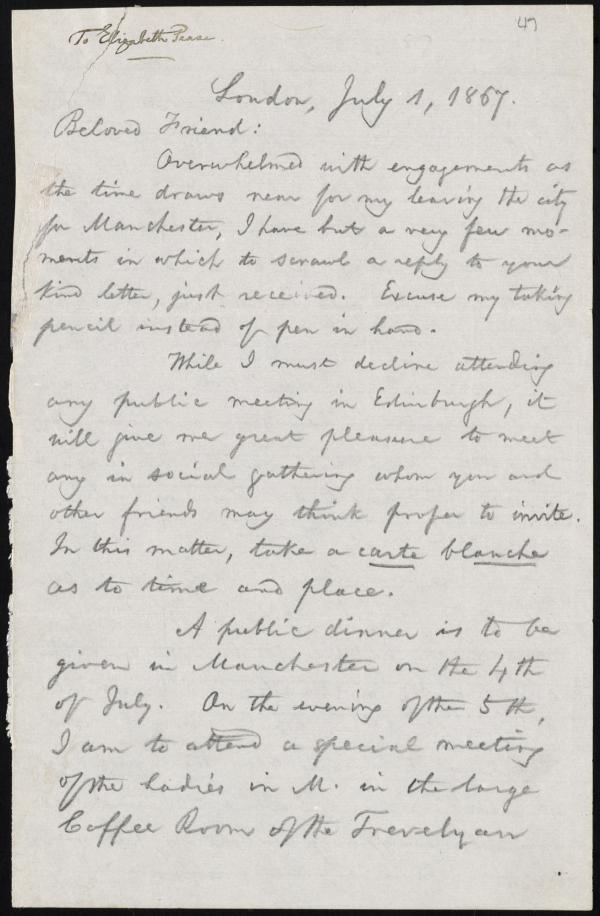 47
To Elizabeth Pease.
London, July 1, 1867.
Beloved Friend:
Overwhelmed with engagements as
the time draws near for my leaving the city
for Manchester, I have but a very few mo-
ments in which to scrawl a reply to your
kind letter, just received. Excuse my taking
pencil instead of pen in hand.
While I must decline attending
any public meeting in Edinburgh, it
will give me great pleasure to meet
any in social gathering whom you and
other friends may think proper to invite.
In this matter, take a carte blanche
as to time and place.
A public dinner is to be
given in Manchester on the 4th
of July. On the evening of the 5th,
I am to attend a special meeting
of the Ladies in M. in the large
Coffee Room of the Trevelyan